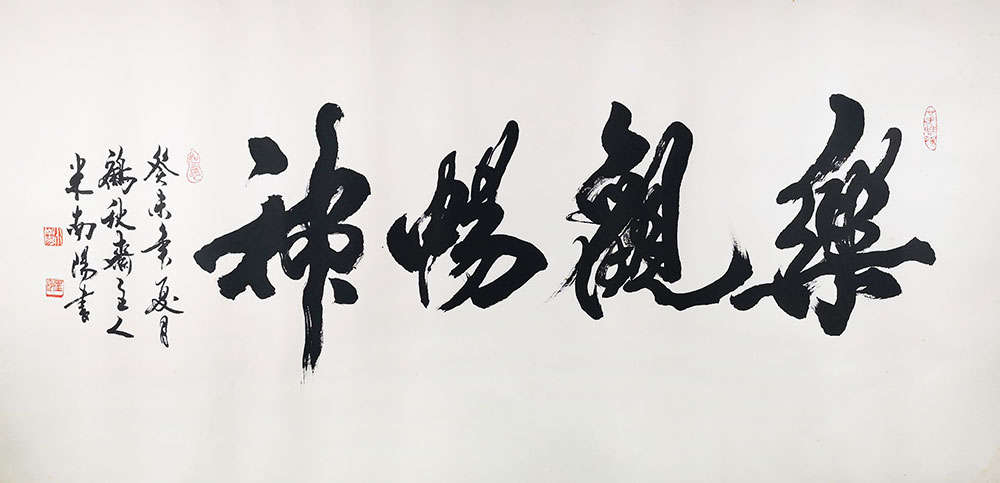 樂觀暢神
癸未年夏月
鶴秋齋主人
米南陽書